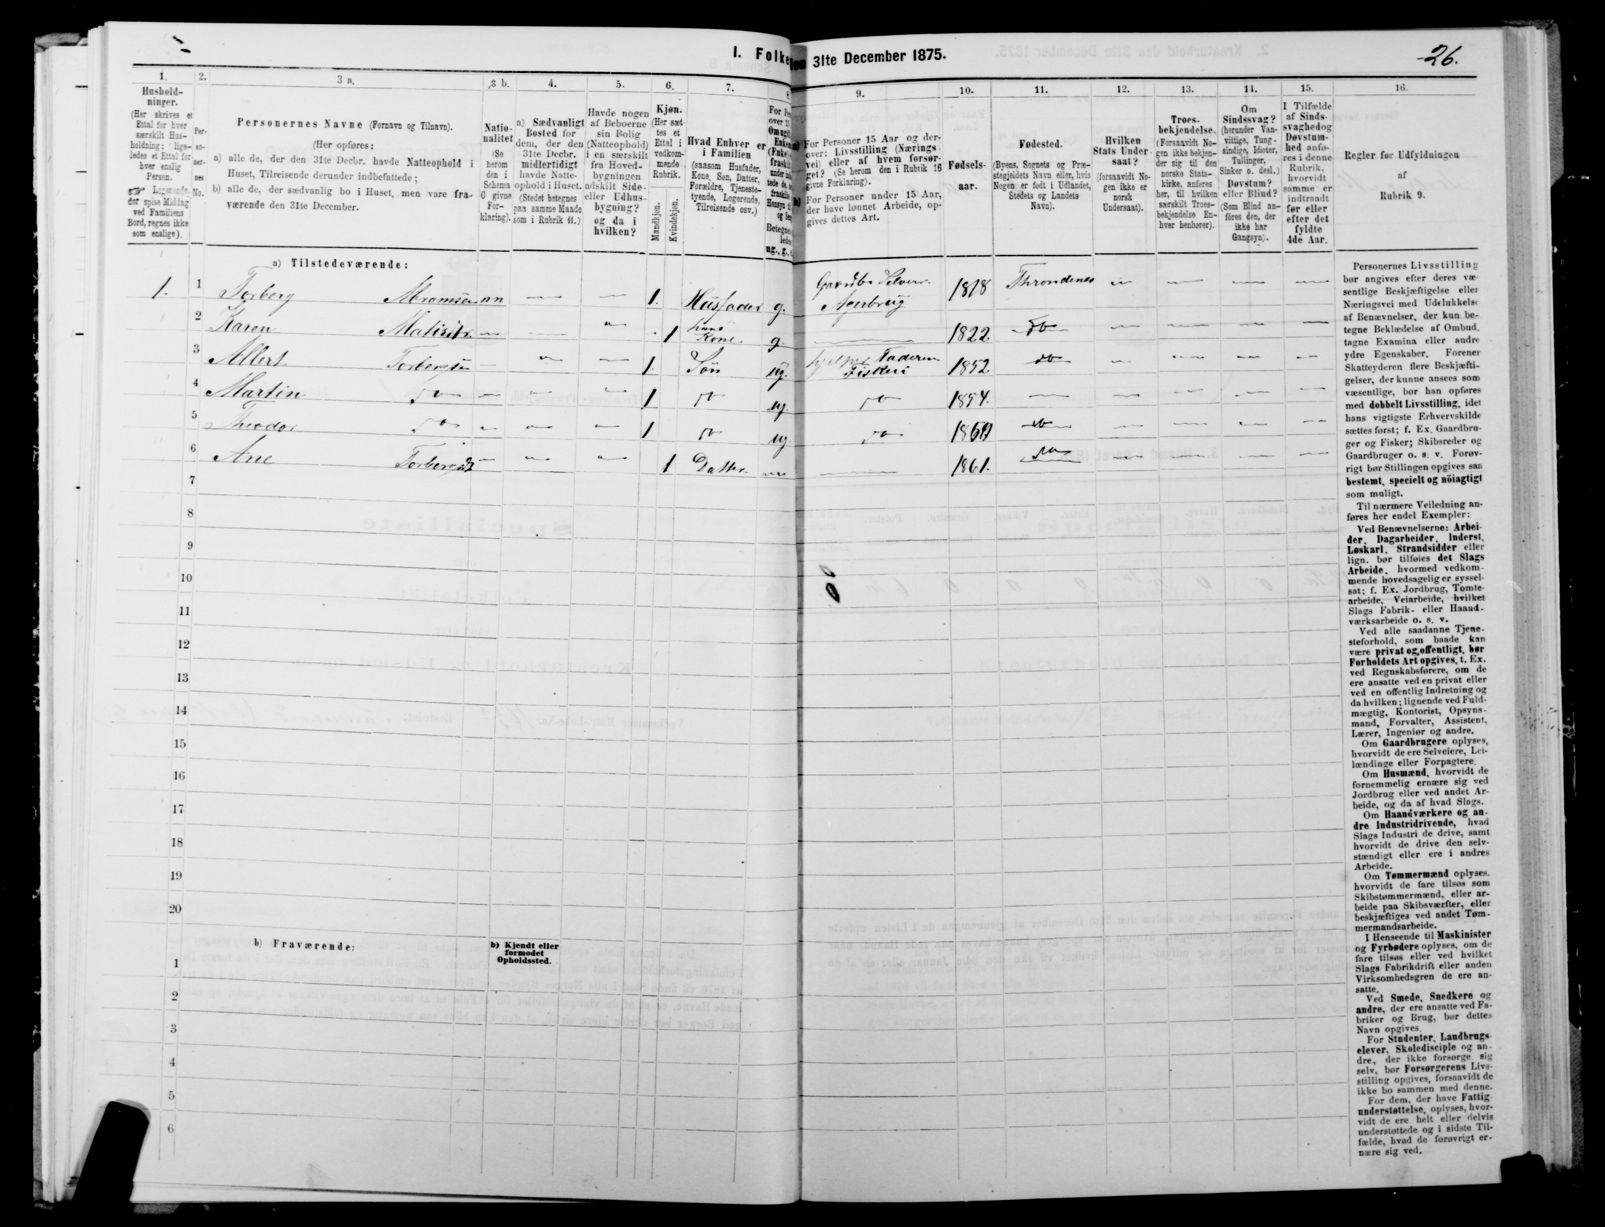 I. Folke
som 31te December 1875.
26.
1.
Hushold-
ninger.
(Her skrives et
Ettal for hver
særskilt Hus-
holdning; lige-
ledes et Ettal for
hver enslig
Person.
Logerende,
der spise Middag
ved Familiens
Bord, regnes ikke
som enslige).
2.
Per-
so-
ner-
nes
No.
3 a.
Personernes Navne (Fornavn og Tilnavn).
(Her opføres:
a) alle de, der den 31te Decbr. havde Natteophold i
Huset, Tilreisende derunder indbefattede;
b) alle de, der sædvanlig bo i Huset, men vare fra-
værende den 31te December.
3 b.
Natio-
nalitet
(Se
herom
den i
Schema
6 givne
For-
klaring).
4.
a) Sædvanligt
Bosted for
dem, der den
31te Decbr.
midlertidigt
havde Natte-
ophold i Huset.
(Stedet betegnes
paa samme Maade
som i Rubrik 11.)
5.
Havde nogen
af Beboerne
sin Bolig
(Natteophold)
i en særskilt
fra Hoved-
bygningen
adskilt Side-
eller Udhus-
bygning?
og da i
hvilken?
6.
Kjøn.
(Her sæt-
tes et
Ettal i
vedkom-
mende
Rubrik.
Mandkjøn.
Kvindekjøn.
7.
Hvad Enhver er
i Familien
(saasom Husfader,
Kone, Søn, Datter,
Forældre, Tjeneste-
tyende, Logerende,
Tilreisende osv.)
9.
For Personer 15 Aar og der-
over: Livsstilling (Nærings-
vei) eller af hvem forsør-
get? (Se herom den i Rubrik 16
givne Forklaring).
For Personer under 15 Aar,
der have lønnet Arbeide, op-
gives dettes Art.
10.
Fødsels-
aar.
11.
Fødested.
(Byens, Sognets og Præ-
stegjeldets Navn eller, hvis
Nogen er født i Udlandet,
Stedets og Landets
Navn).
12.
Hvilken
Stats Under-
saat?
(forsaavidt No-
gen ikke er
norsk
Undersaat).
13.
Troes-
bekjendelse.
(Forsaavidt No-
gen ikke bekjen-
der sig til den
norske Stats-
kirke, anføres
her, til hvilken
særskilt Troes-
bekjendelse En-
hver henhører).
14.
Om
Sindssvag?
(herunder Van-
vittige, Tung-
sindige, Idioter,
Tullinger,
Sinker o. desl.)
Døvstum?
eller Blind?
(Som Blind an-
føres den, der
ikke har
Gangsyn).
15.
I Tilfælde
af Sinds-
svaghed og
Døvstum-
hed anfø-
res i denne
Rubrik,
hvorvidt
samme er
indtraadt
før eller
efter det
fyldte
4de Aar.
16.
Regler for Udfyldningen
af
Rubrik 9.
a) Tilstedeværende:
1. 1 Torberg Abramsen nn 1. Husfader g. Gaardbr. Selveier Agerbrug 1818 Throndenes
2 Karen 1 hans Kone g. 1822. do
3 Albert Torbergsen 1. Søn ug. hjelper Faderen Fiskeri 1852 do
4 Martin do 1 do ug. do 1854.
5 Theodor do 1 do ug do do
6 Ane 1 Datter 1861. do
7
8
9
10
11
12
13
14
15
16
17
18
19
20
b) Fraværende:
b) Kjendt eller
formodet
Opholdssted.
1
2
3
4
5
6
Personernes Livsstilling
bør angives efter deres væ-
sentlige Beskjæftigelse eller
Næringsvei med Udelukkelse
af Benævnelser, der kun be-
tegne Beklædelse af Ombud,
tagne Examina eller andre
ydre Egenskaber. Forener
Skatteyderen flere Beskjæfti-
gelser, der kunne ansees som
væsentlige, bør han opføres
med dobbelt Livsstilling, idet
hans vigtigste Erhvervskilde
sættes først; f. Ex. Gaardbru-
ger og Fisker; Skibsreder og
Gaardbruger o. s. v. Forøv-
rigt bør Stillingen opgives saa
bestemt, specielt og nöiagtigt
som muligt.
Til nærmere Veiledning an-
føres her endel Exempler:
Ved Benævnelserne: Arbei-
der, Dagarbeider, Inderst,
Løskarl, Strandsidder eller
lign. bør tilføies det Slags
Arbeide, hvormed vedkom-
mende hovedsagelig er syssel-
sat; f. Ex. Jordbrug, Tomte-
arbeide, Veiarbeide, hvilket
Slags Fabrik- eller Haand-
værksarbeide o. s. v.
Ved alle saadanne Tjene-
steforhold, som baade kan
være privat og offentligt, bør
Forholdets Art opgives, t. Ex.
ved Regnskabsførere, om de
ere ansatte ved en privat eller
ved en offentlig Indretning og
da hvilken; lignende ved Fuld-
mægtig, Kontorist, Opsyns-
mand, Forvalter, Assistent,
Lærer, Ingeniør og andre.
Om Gaardbrugere oplyses,
hvorvidt de ere Selveiere, Lei-
lændinge eller Forpagtere.
Om Husmænd, hvorvidt de
fornemmelig ernære sig ved
Jordbrug eller ved andet Ar-
beide, og da af hvad Slags.
Om Haandværkere og an-
dre Industridrivende, hvad
Slags Industri de drive, samt
hvorvidt de drive den selv-
stændigt eller ere i andres
Arbeide.
Om Tømmermænd oplyses,
hvorvidt de fare tilsøs som
Skibstømmermænd, eller ar-
beide paa Skibsværfter, eller
beskjæftiges ved andet Tøm-
mermandsarbeide.
I Henseende til Maskinister
og Fyrbødere oplyses, om de
fare tilsøs eller ved hvilket
Slags Fabrikdrift eller anden
Virksomhedsgren de ere an-
satte.
Ved Smede, Snedkere og
andre, der ere ansatte ved Fa-
briker og Brug, bør dettes
Navn opgives.
For Studenter, Landbrugs-
elever, Skoledisciple og an-
dre, der ikke forsørge sig
selv, bør Forsørgerens Livs-
stilling opgives, forsaavidt de
ikke bo sammen med denne.
For dem, der have Fattig-
understøttelse, oplyses, hvor-
vidt de ere helt eller delvis
understøttede og i sidste Til-
fælde, hvad de forøvrigt er-
nære sig ved.